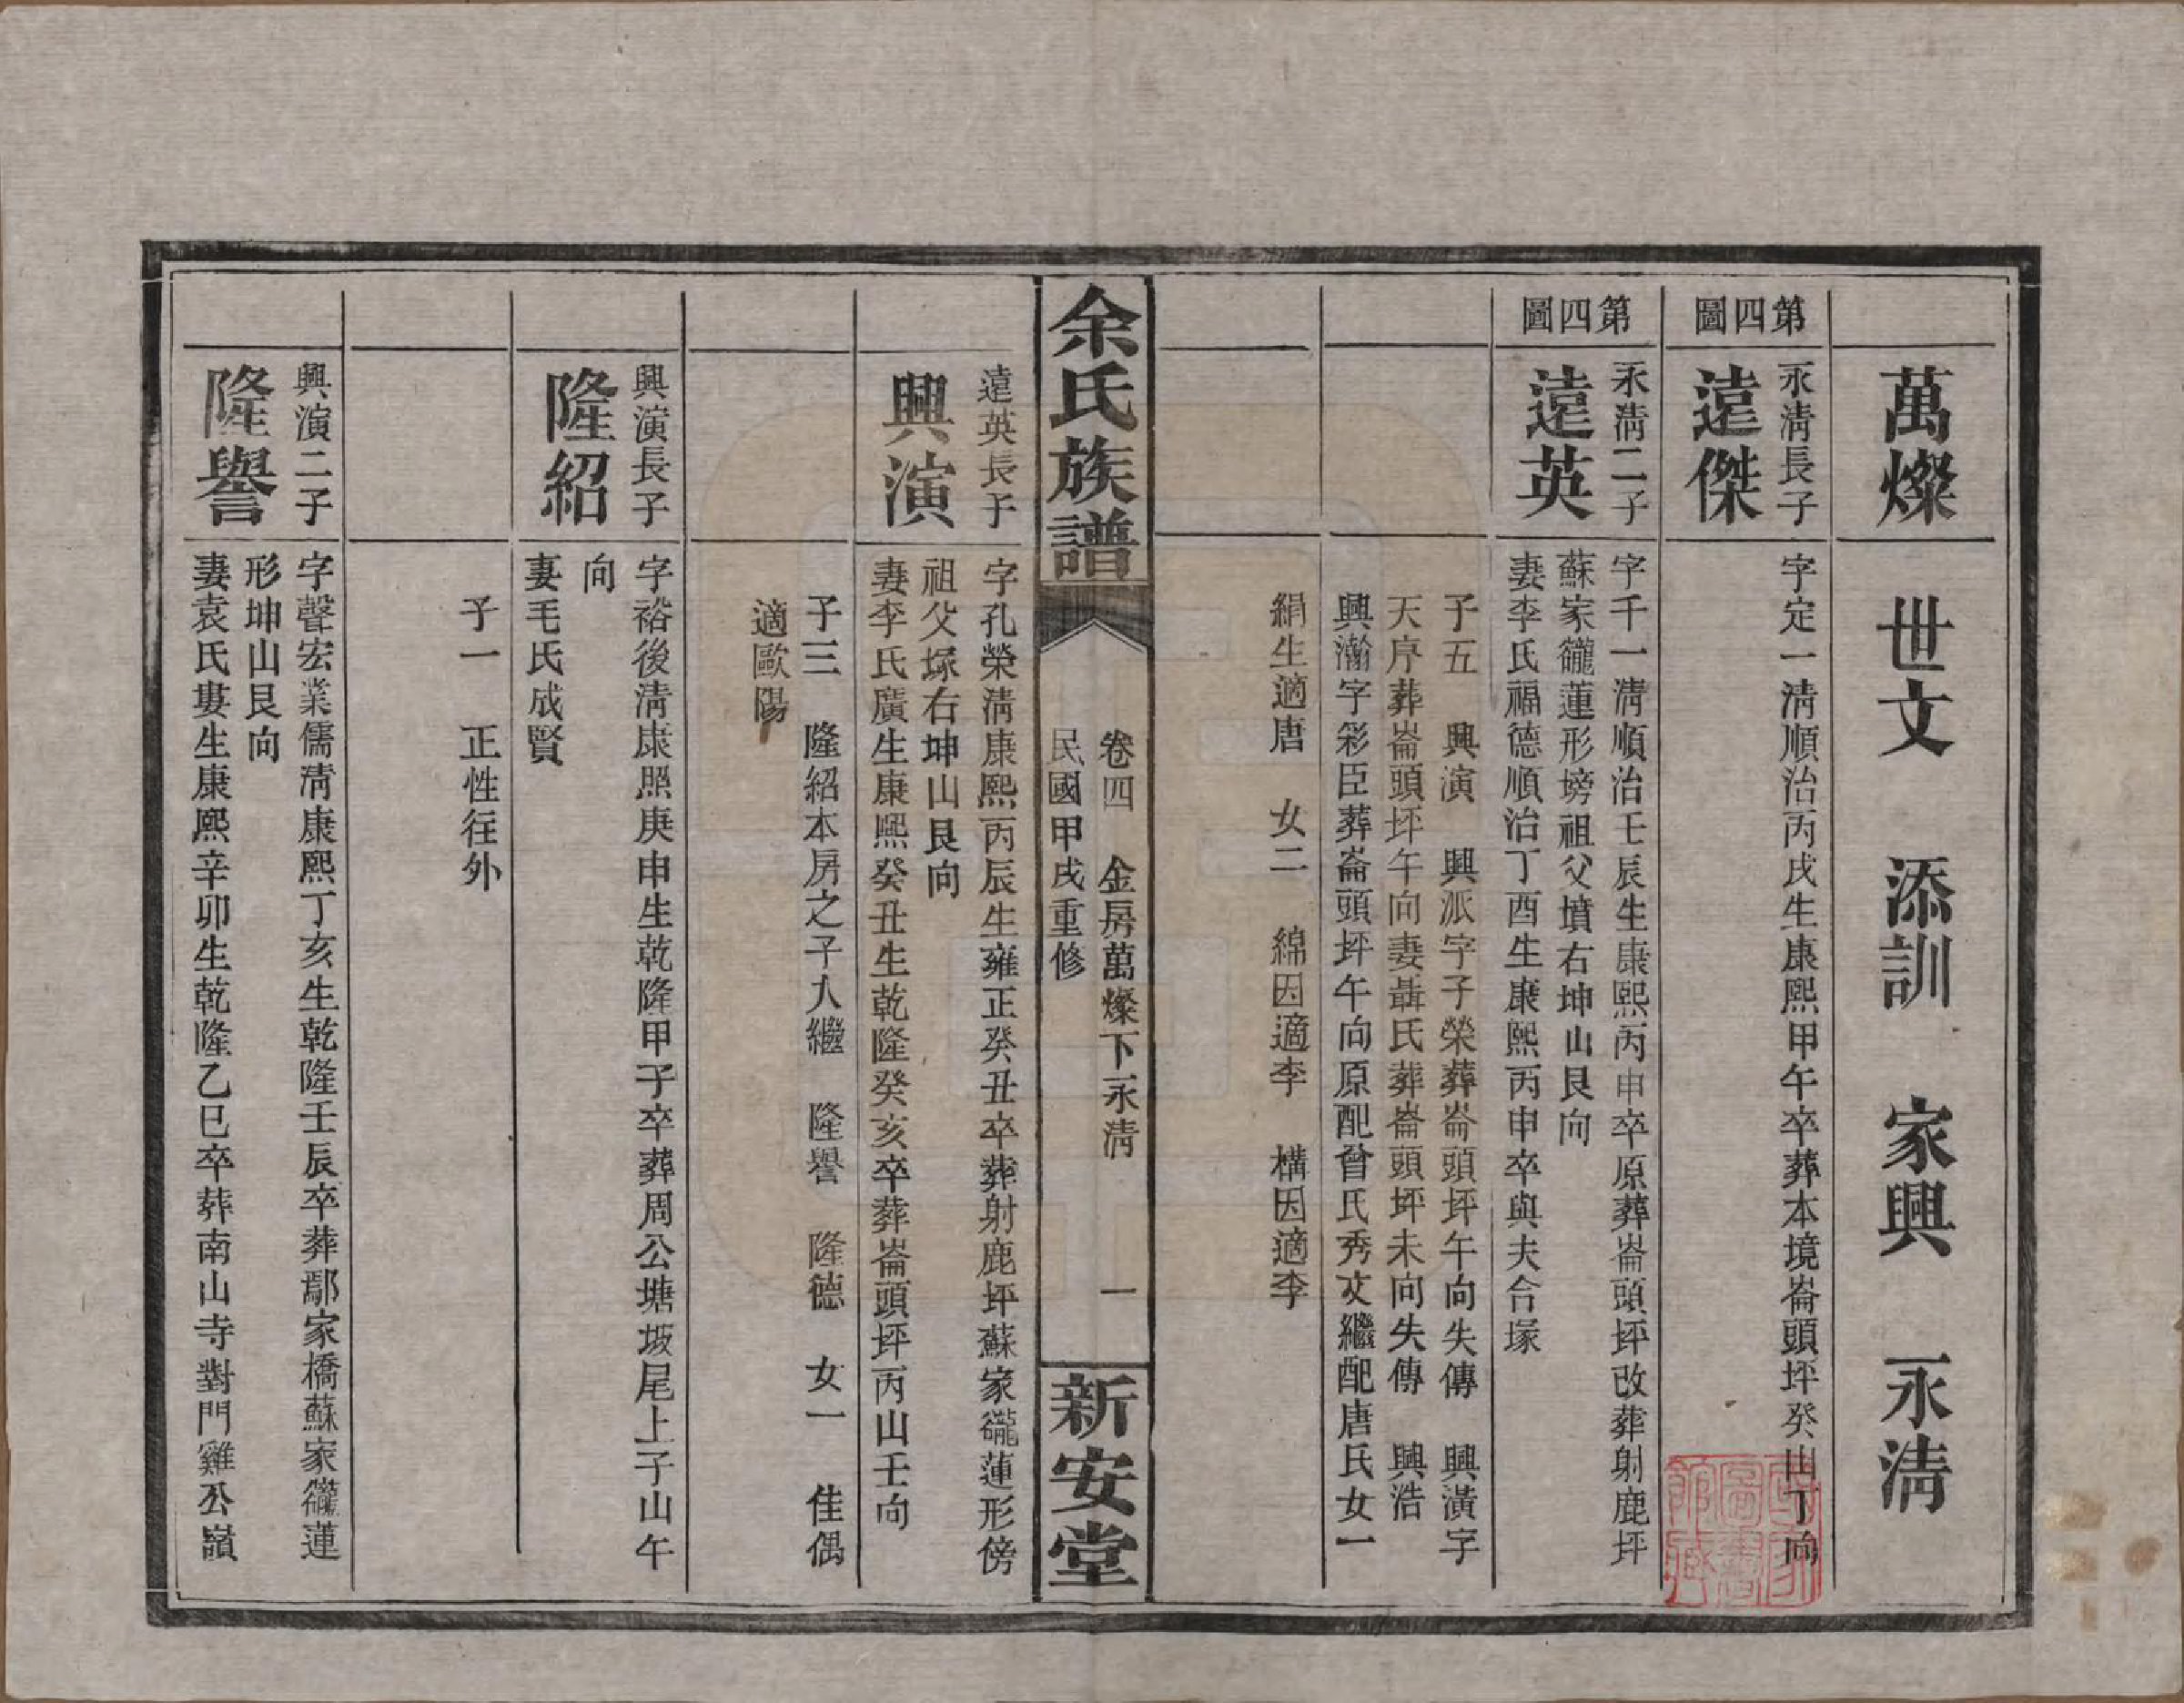 萬燦　世文　添訓　家興　永淸
第四圖
永淸長子
遠傑
字定一淸順治丙戌生康熙甲午卒葬本境崙頭坪癸山丁向
第四圖
永淸二子
遠英
字千一淸順治壬辰生康熙丙申卒原葬崙頭坪改葬射鹿坪
蘇家巃蓮形塝祖父墳右坤山艮向
妻李氏福德順治丁酉生康熙丙申卒與夫合塚
子五　興演　興派字子榮葬崙頭坪午向失傳　興潢字
天序葬崙頭坪午向妻聶氏葬崙頭坪未向失傳　興浩
興瀚字彩臣葬崙頭坪午向原配曾氏秀文繼配唐氏女一
絹生適唐　女二　綿因適李　構因適李
余氏族譜
卷四　金房萬燦下永淸　一
民國甲戌重修
新安堂
遠英長子
興演
字孔榮淸康熙丙辰生雍正癸丑卒葬射鹿坪蘇家巃蓮形傍
祖父塚右坤山艮向
妻李氏廣生康熙癸丑生乾隆癸亥卒葬崙頭坪丙山壬向
子三　隆紹本房之子入繼　隆譽　隆德　女一　佳偶
適歐陽
興演長子
隆紹
字裕後淸康熙庚申生乾隆甲子卒葬周公塘坂尾上子山午
向
妻毛氏成賢
子一　正性往外
興演二子
隆譽
字聲宏業儒淸康熙丁亥生乾隆壬辰卒葬鄢家橋蘇家巃蓮
形坤山艮向
妻袁氏婁生康熙辛卯生乾隆乙巳卒葬南山寺對門雞公嶺